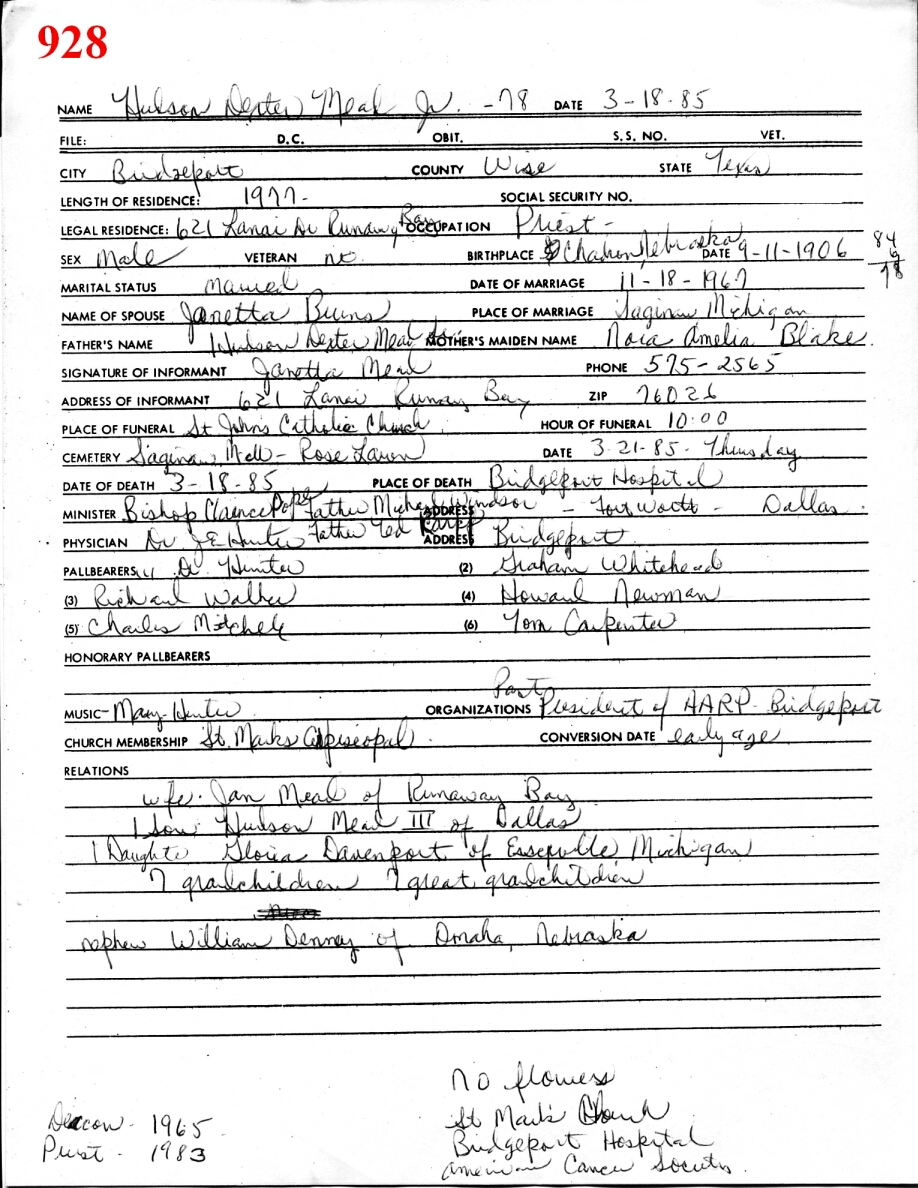 928
NAME Hudson Dexter Mead Jr. -78 DATE 3-18-85
FILE: D.C. OBIT. S.S. NO. VET.
CITY Bridgeport COUNTY Wise STATE Texas
LENGTH OF RESIDENCE: 1977- SOCIAL SECURITY NO.
LEGAL RESIDENCE: 621 Lanai Dr Runaway Bay OCCUPATION Priest -
SEX Male VETERAN no. BIRTHPLACE Chadron Nebraska DATE 9-11-1906 84
6
78
MARITAL STATUS married DATE OF MARRIAGE 11-18-1967
NAME OF SPOUSE Janetta Burns PLACE OF MARRIAGE Saginaw Michigan
FATHER'S NAME Hudson Dexter Mead Sr. MOTHER'S MAIDEN NAME Nora Amelia Blake.
SIGNATURE OF INFORMANT Janetta Mead PHONE 575-2565
ADDRESS OF INFORMANT 621 Lanai Runaway Bay ZIP 76026
PLACE OF FUNERAL St Johns Catholic Church HOUR OF FUNERAL 10:00
CEMETERY Saginaw, - Rose Lawn DATE 3-21-85- Thursday
DATE OF DEATH 3-18-85 PLACE OF DEATH Bridgeport Hospital
MINISTER Bishop Clarence Pope Father Michael Windsor ADDRESS - Fort Worth - Dallas.
PHYSICIAN Dr JE Hunter Father Ted ADDRESS Bridgeport
PALLBEARERS (1) Dr. Hunter (2) Graham Whitehead
(3) Richard Walker (4) Howard Newman
(5) Charles Mitchele (6) Tom Carpenter
HONORARY PALLBEARERS
Past
MUSIC- Mary Hunter ORGANIZATIONS President of AARP- Bridgeport
CHURCH MEMBERSHIP St. Marks Episcopal. CONVERSION DATE early age
RELATIONS
wife. Jan Mead of Runaway Bay
1 Son: Hudson Mead III of Dallas
1 Daughter Gloria Davenport of Essexville Michigan
7 grandchildren 7 great grandchildren
nephew William Denney of Omaha, Nebraska
no flowers
Deacon - 1965
Priest - 1983
St Mark's Church
Bridgeport Hospital
American Cancer Society.